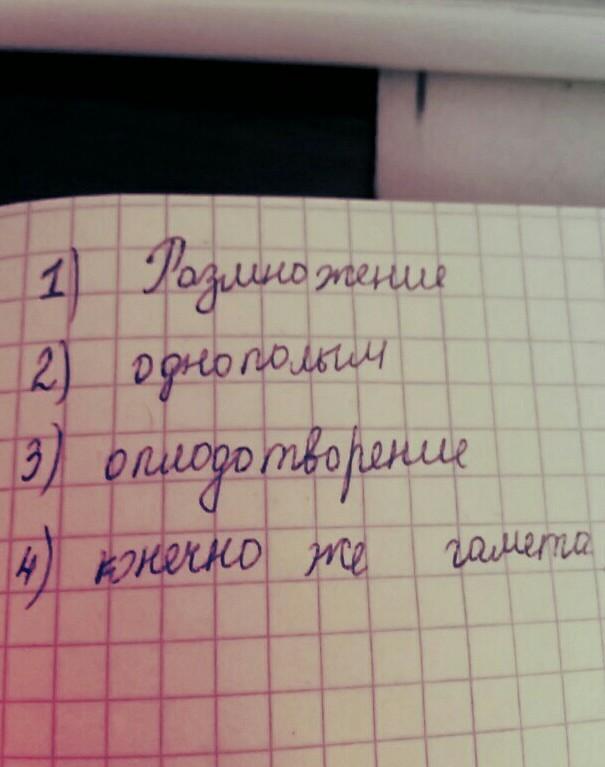 1) Размножение
2) однополым
3) оплодотворение
4) конечно же гамета